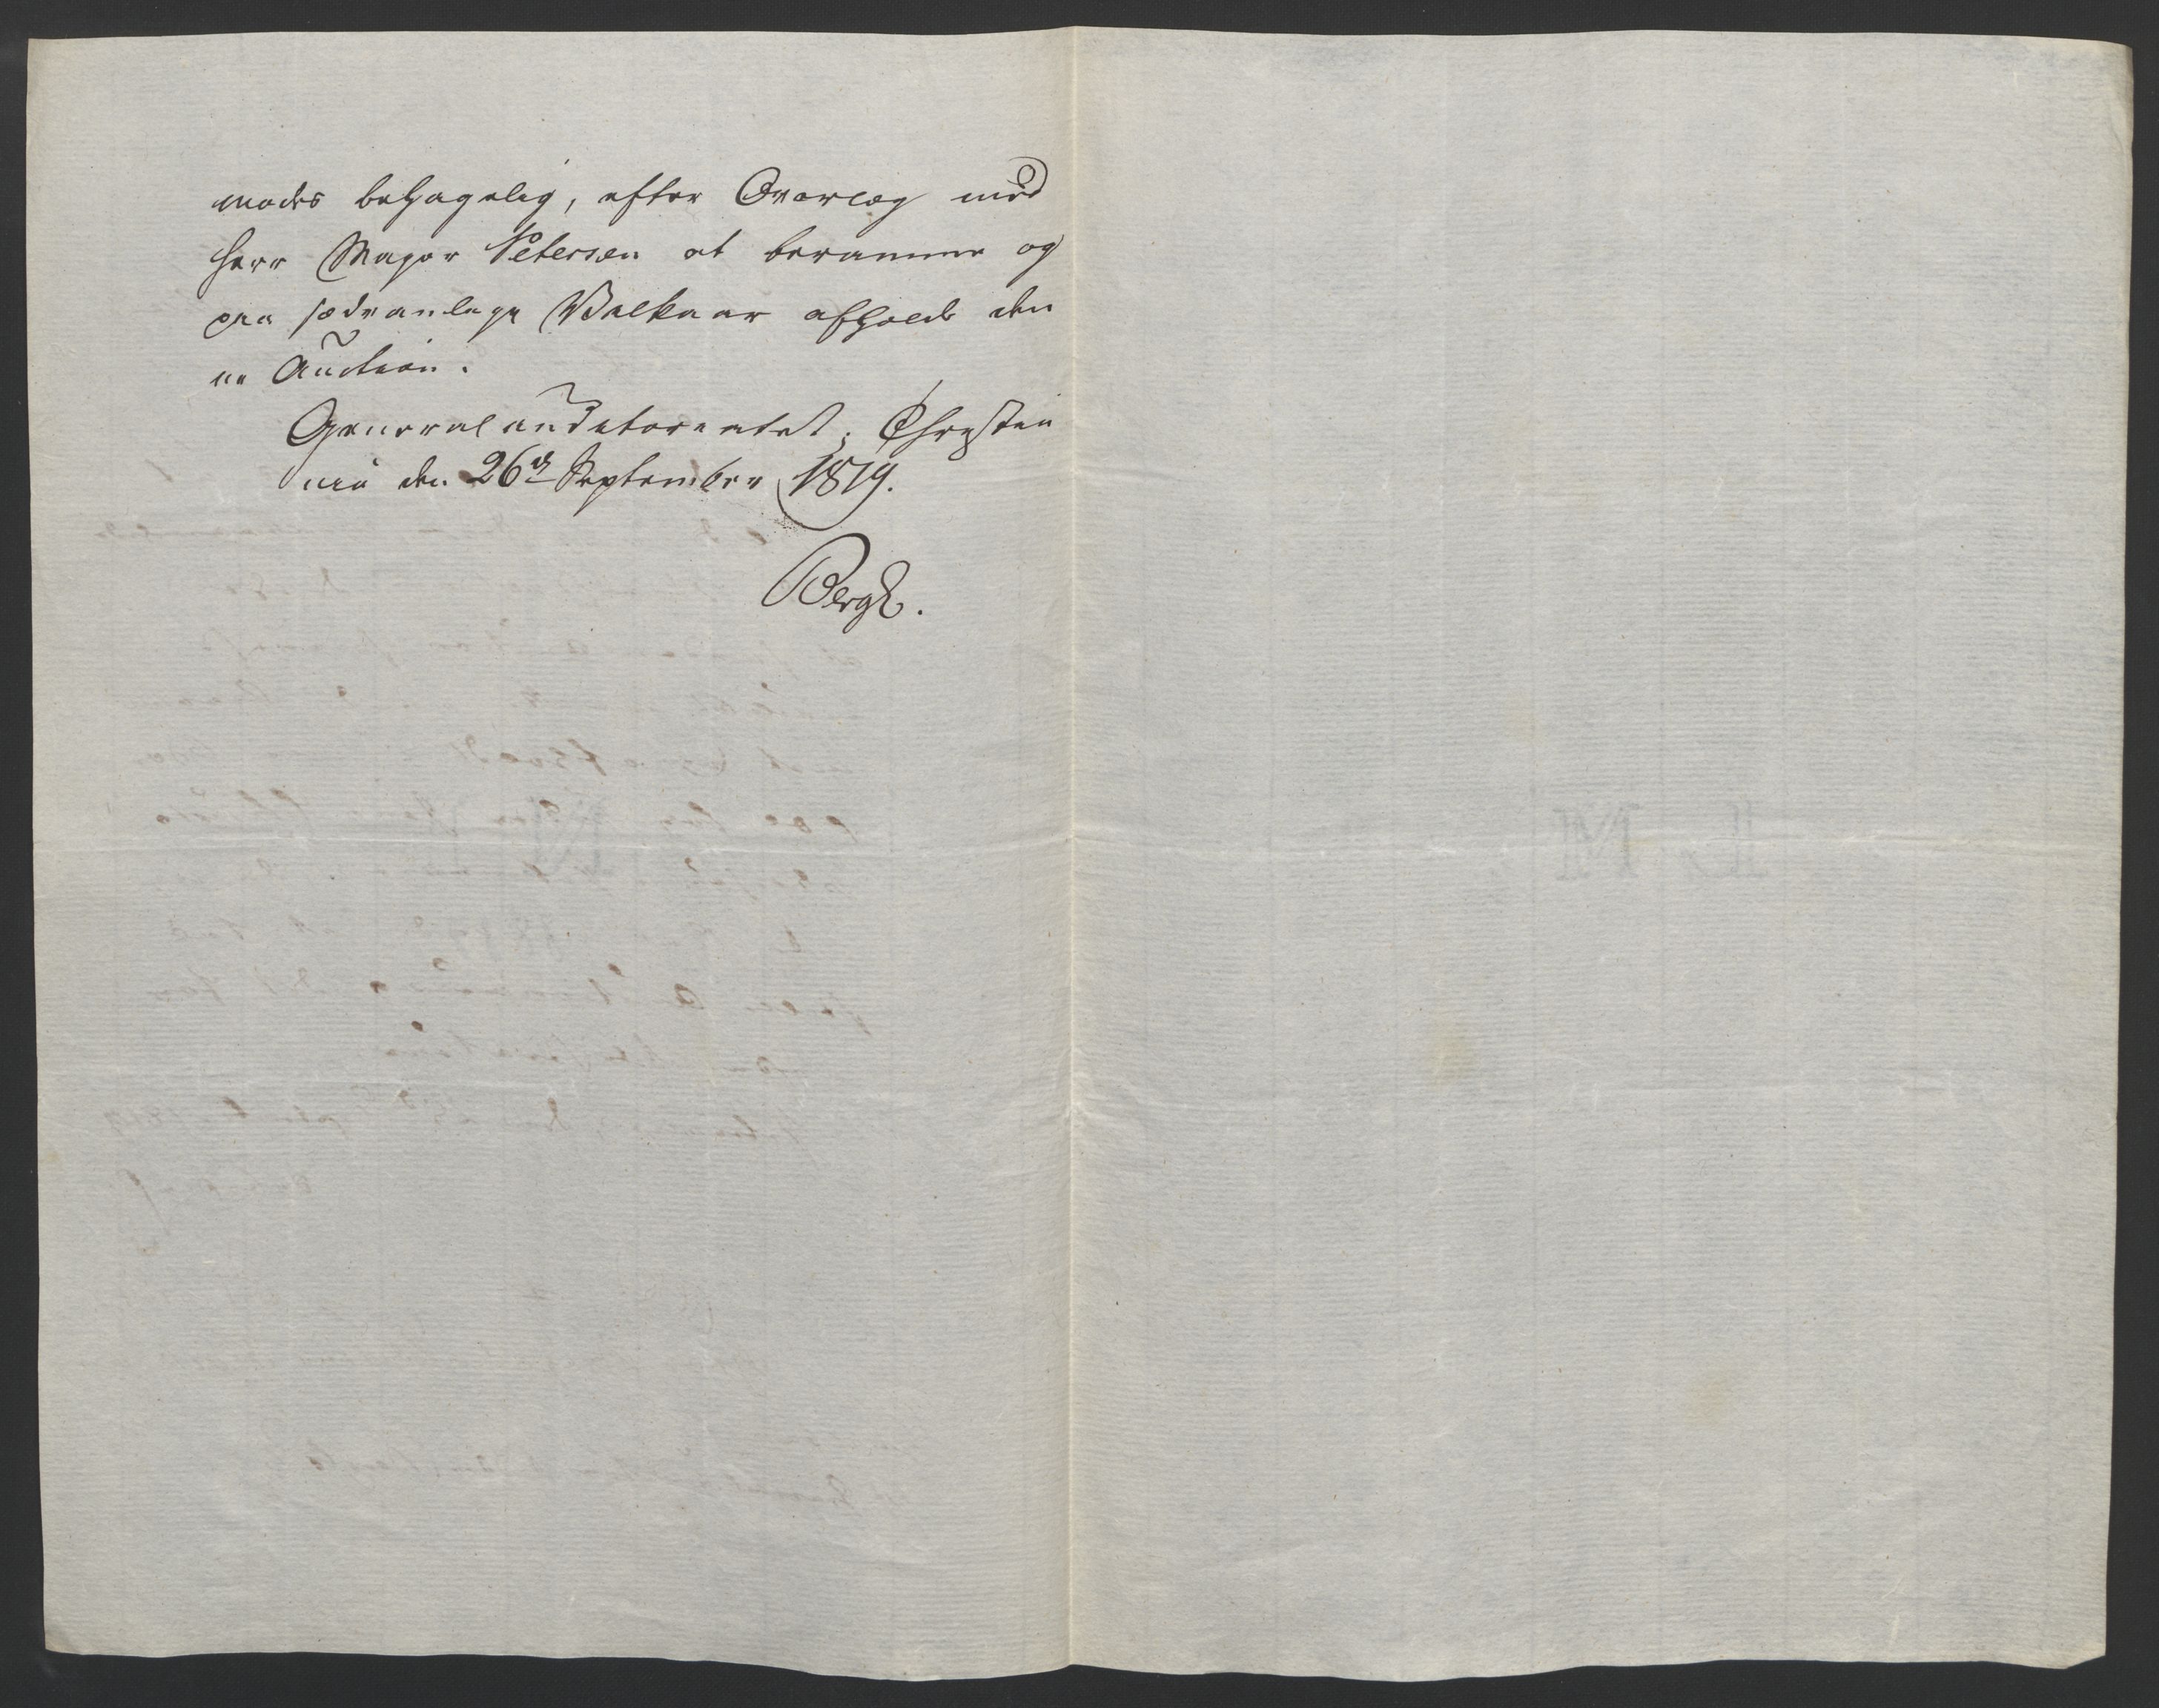 modes behagelig, efter Overlæg med
Herr Major Petersen at beramme og
paa sædvanlige Vilkaar afholde den
ne Auction.
Generalauditoriatet; Christia
nia den 26de September 1819.
Bergh.